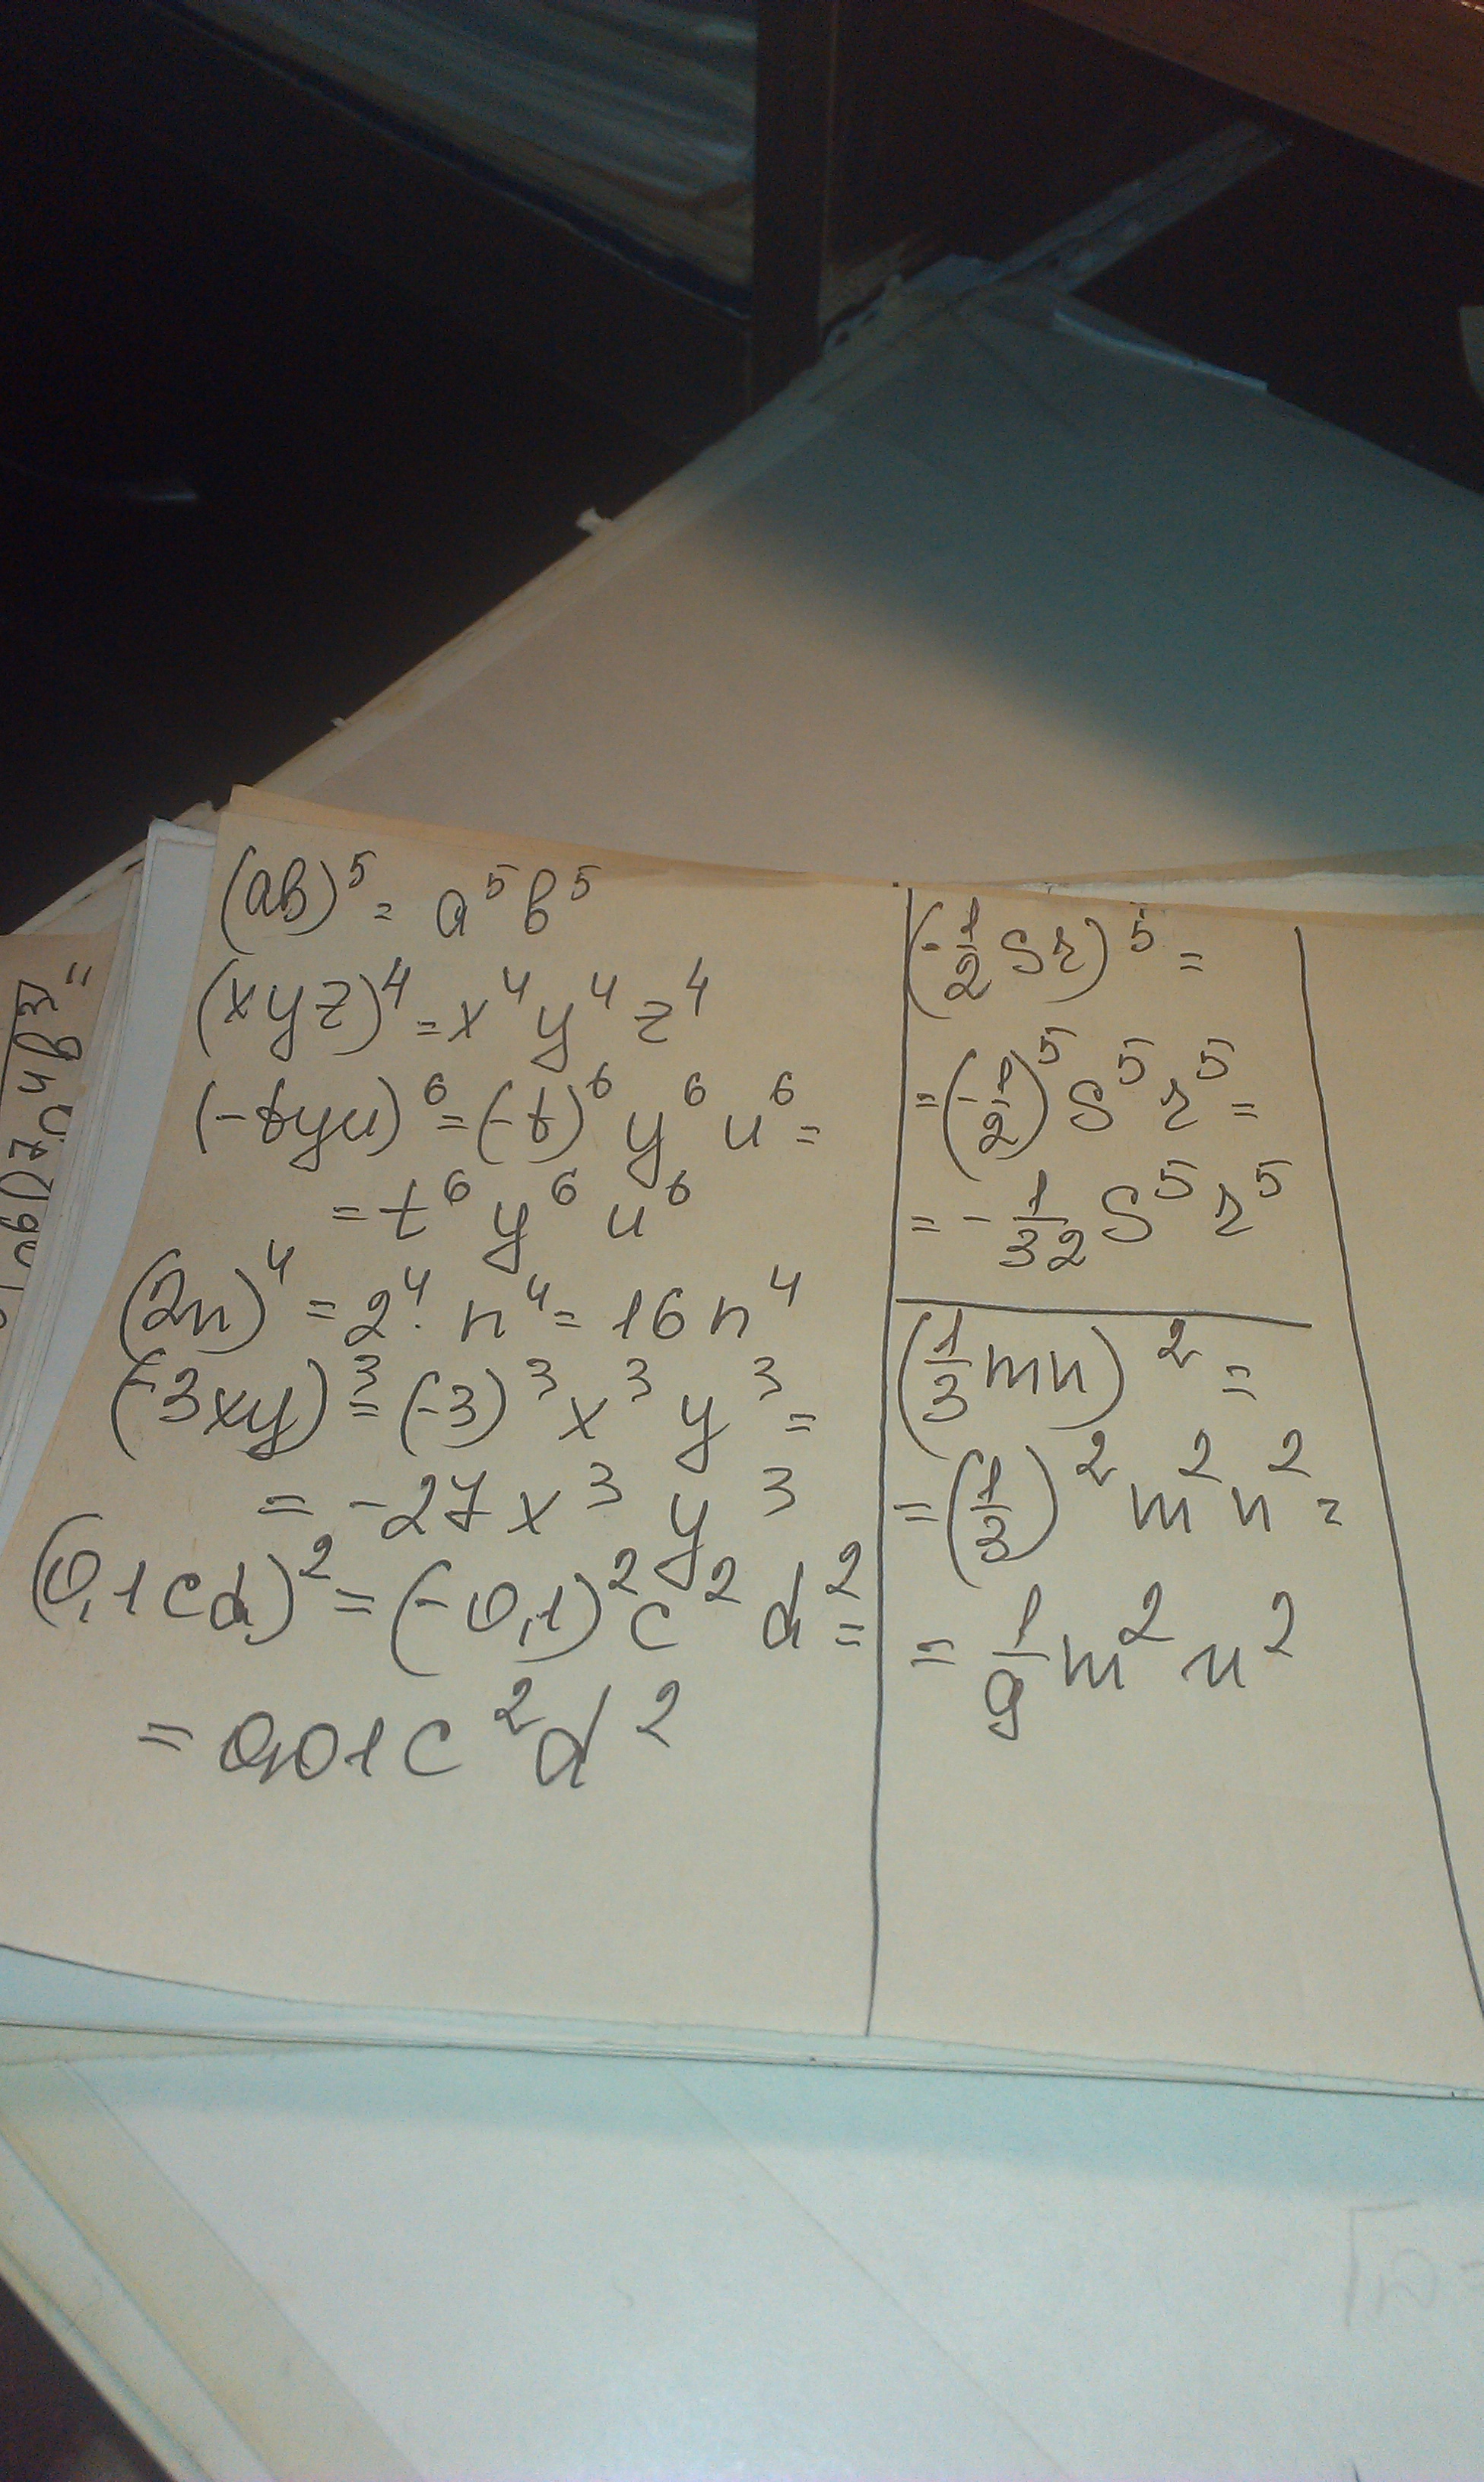 (ab)⁵ = a⁵b⁵
(xyz)⁴ = x⁴y⁴z⁴
(-tyu)⁶ = (-t)⁶y⁶u⁶ =
= t⁶y⁶u⁶
(2n)⁴ = 2⁴·n⁴ = 16n⁴
(-3xy)³ = (-3)³x³y³ =
= -27x³y³
(0,1cd)² = (-0,1)²c²d² =
= 0,01c²d²
(-1/2 sr)⁵ =
= (-1/2)⁵s⁵r⁵ =
= -1/32 s⁵r⁵
(1/3 mn)² =
= (1/3)²m²n² =
= 1/9 m²n²